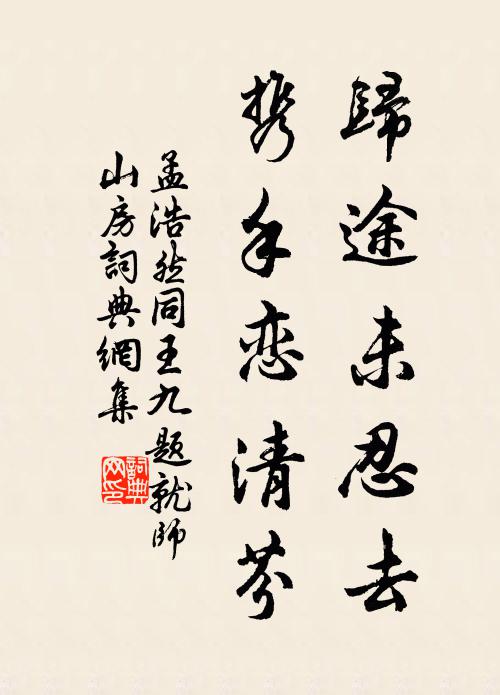 歸途未忍去
携手恋清芬
孟浩然同王九題就師
山房詞典網集
詞典
网印